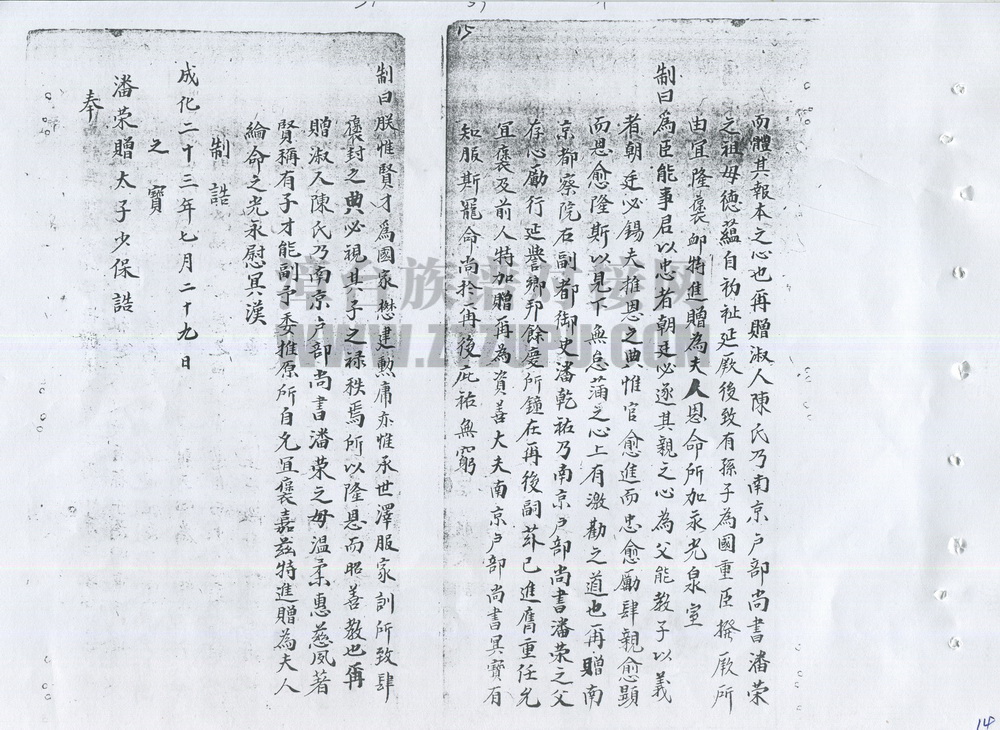 15
而體其報本之心也再贈淑人陳氏乃南京户部尚書潘榮
之祖母德蘊自初祉延厥後致有孫子為國重臣撥厥所
由宜隆褒卹特進贈為夫人恩命所加永光泉室
制曰為臣能事君以忠者朝廷必逐其親之心為父能教子以義
者朝廷必錫夫推恩之典惟官愈進而忠愈勵肆親愈顯
而恩愈隆斯以見下無怠蒲之心上有激勸之道也再贈南
京都察院右副都御史潘乾祐乃南京户部尚書潘榮之父
存心勵行延譽鄉邦餘慶所鐘在再後嗣茲已進膺重任允
宜褒及前人特加贈再為資善大夫南京户部尚書冥寳有
知服斯寵命尚於再後庇祐無窮
制曰朕惟賢才為國家懋建勳庸亦惟承世澤服家訓所致肆
褒封之典必視其子之禄秩焉所以隆恩而昭善教也再
贈淑人陳氏乃南京户部尚書潘榮之母温柔惠慈夙著
賢稱有子才能副予委推原所自允宜褒嘉兹特進贈為夫人
綸命之光永慰冥漠
制誥
成化二十三年七月二十九日
之寳
潘荣贈太子少保誥
奉
14
章台族譜对接网
WWW.ZTZUPU.COM